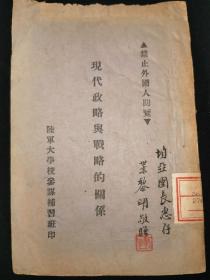 ▲禁止外國人閱覽▼
現代政略與戰略的關係
陸軍大學校參謀補習班印
培亞團長惠存
業黎明敬贈